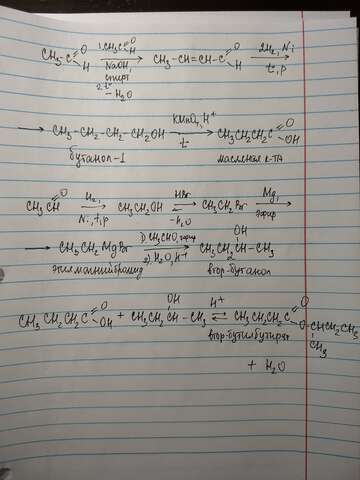 CH₃-C(=O)H  1. CH₃C(=O)H NaOH, спирт 2. t° -H₂O →  CH₃-CH=CH-C(=O)H  2H₂, Ni t, p →
→ CH₃-CH₂-CH₂-CH₂OH  KMnO₄, H⁺ t →  CH₃CH₂CH₂C(=O)OH
бутанол-1  масляная к-та
CH₃CH=O  H₂, Ni, t, p →  CH₃CH₂OH  HBr ⇌ -H₂O  CH₃CH₂Br  Mg, эфир →
→ CH₃CH₂MgBr  1) CH₃CHO, эфир 2) H₂O, H⁺ →  CH₃CH₂CH(OH)-CH₃
этилмагнийбромид  втор-бутанол
CH₃CH₂CH₂C(=O)OH + CH₃CH₂CH(OH)-CH₃  H⁺ ⇌  CH₃CH₂CH₂C(=O)O-CHCH₂CH₃ CH₃
втор-бутилбутират
+ H₂O